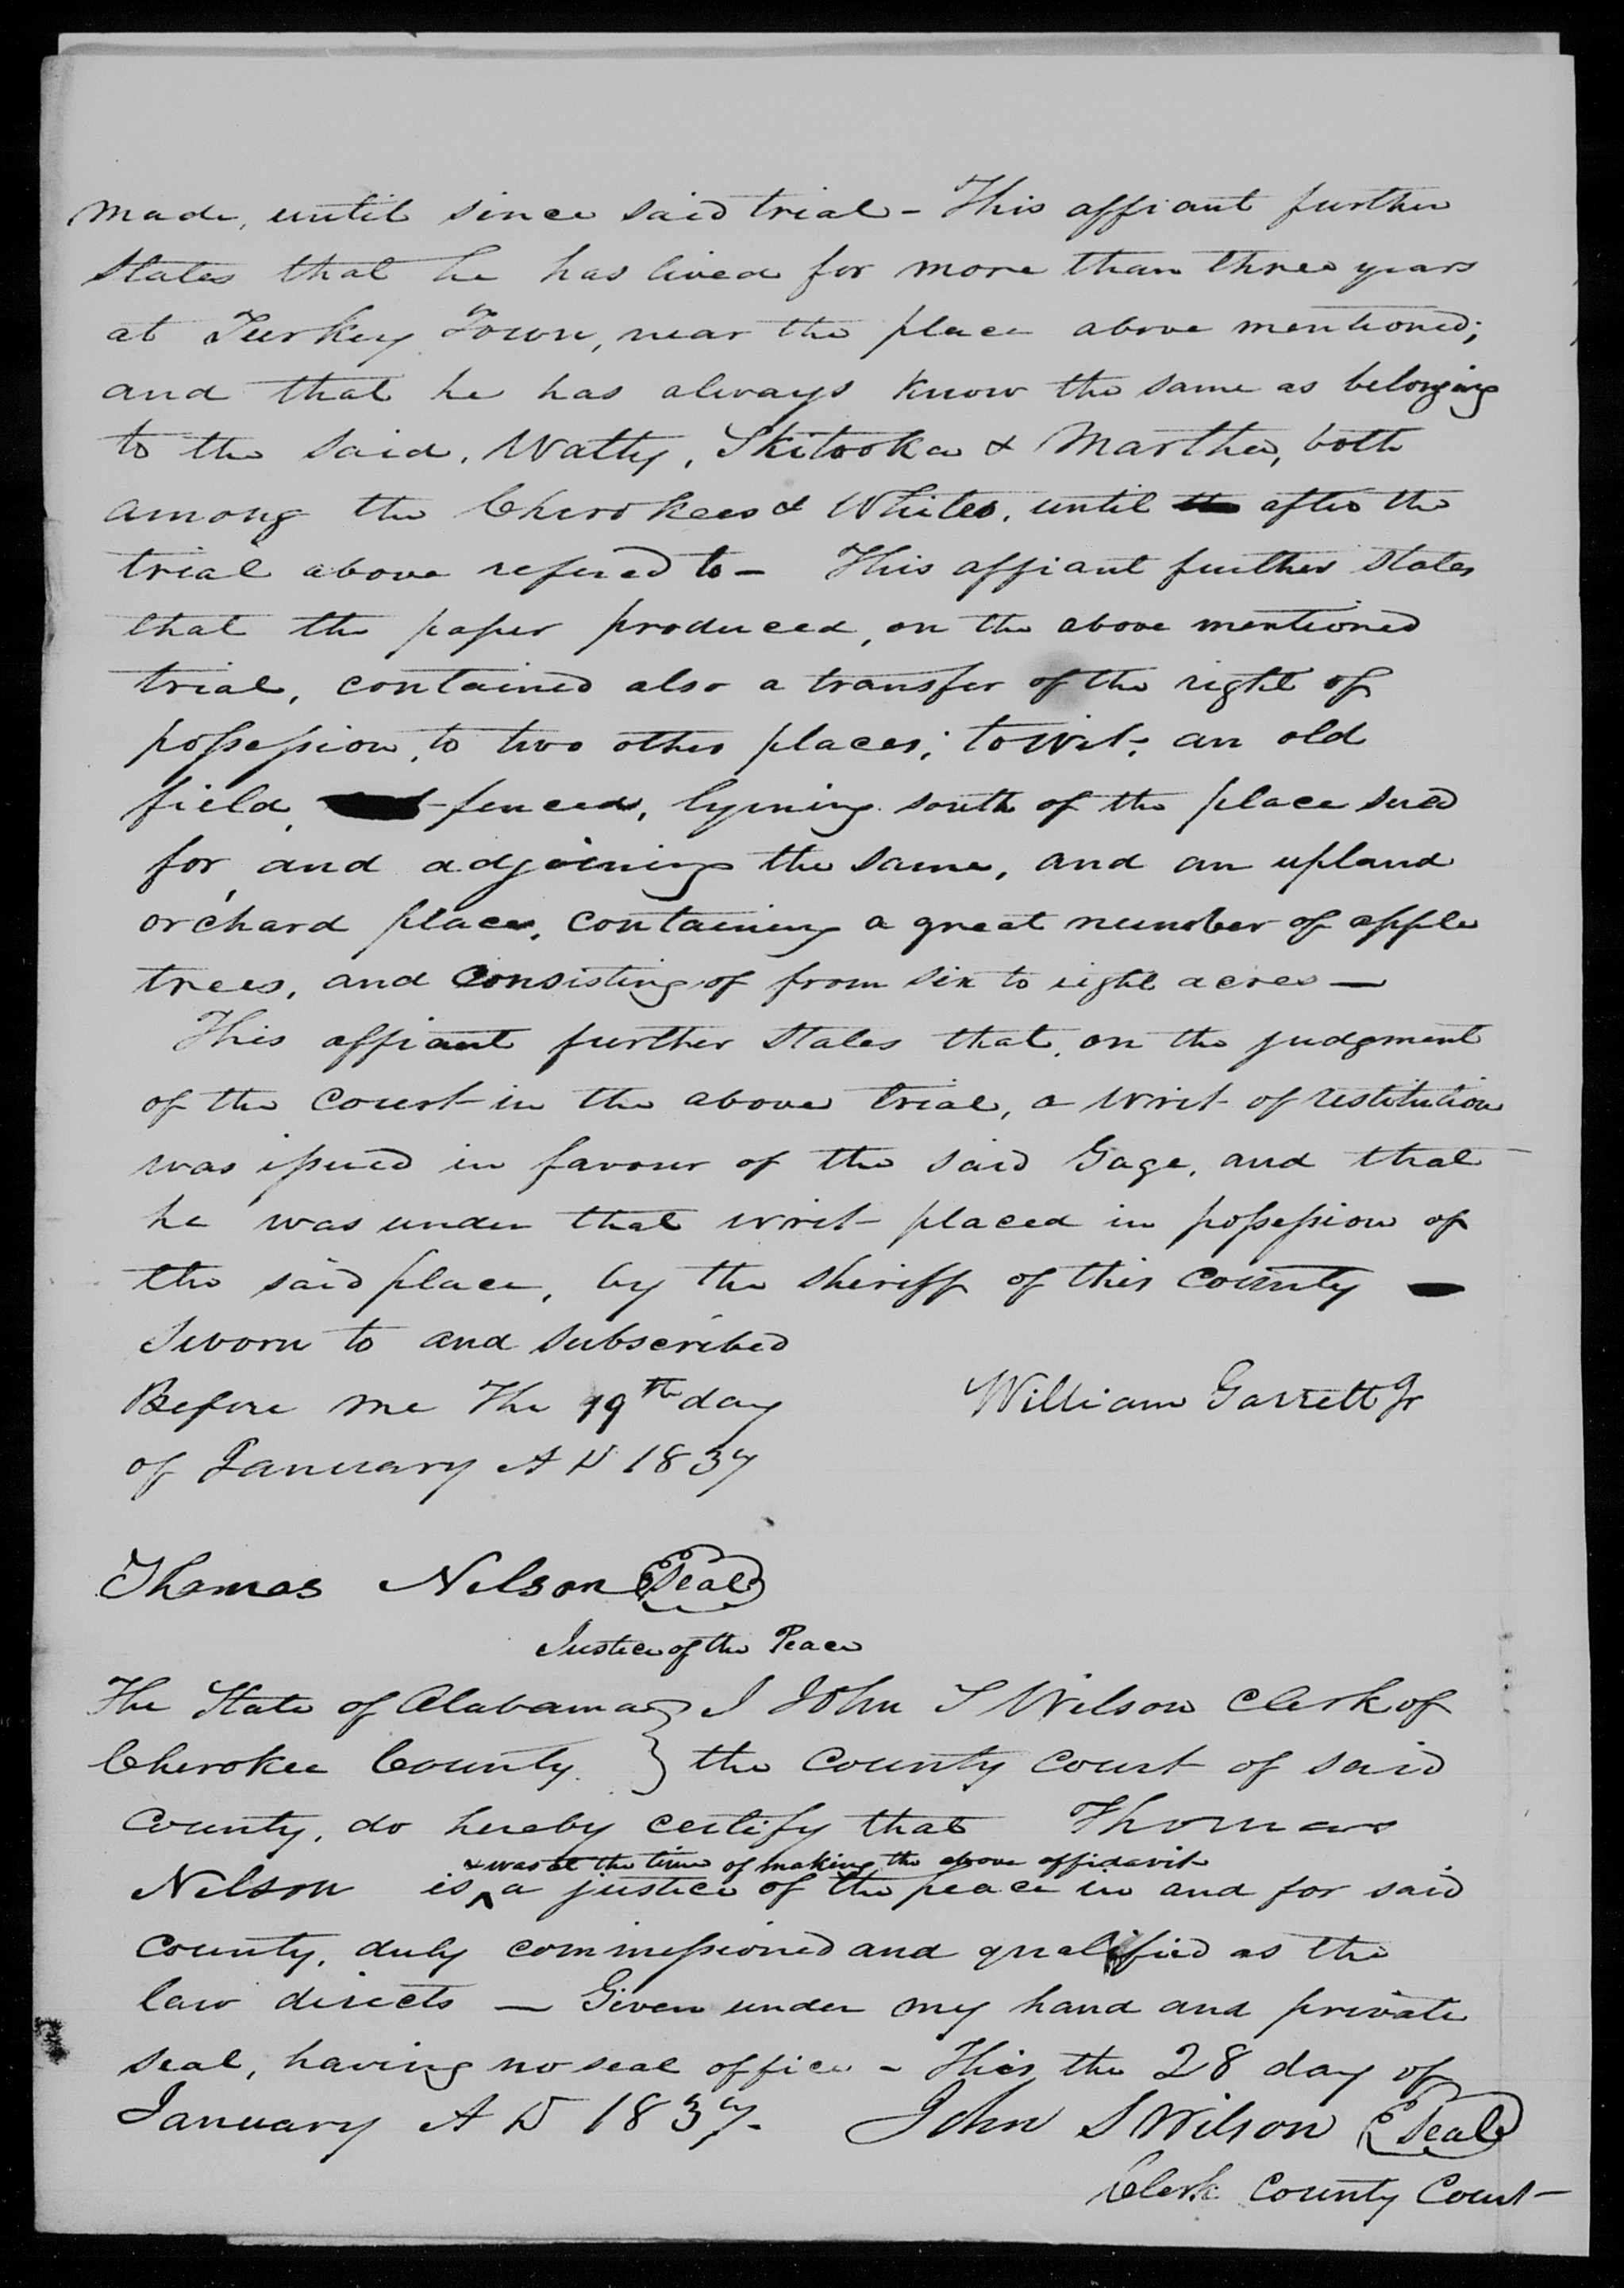 made, until since said trial - This affiant further
States that he has lived for more than three years
at Turkey Town, near the place above mentioned;
and that he has always know the same as belonging
to the said, Watty, Skitooka & Martha, both
among the Cherokees & Whites, until the after the
trial above refered to - This affiant further States
that the paper produced, on the above mentioned
trial, contained also a transfer of the right of
possession, to two other places; towit; an old
field, fenced, lyining south of the place sued
for, and adjoining the same, and an upland
orchard place, containing a great number of apple
trees, and Consisting of from six to eight acres —
This affiant further States that, on the judgment
of the Court in the above trial, a writ of restitution
was issued in favour of the said Gage, and that
he was under that writ placed in possession of
the said place, by the Sheriff of this County
Sworn to and subscribed
Before me The 19th day
William Garrett Jr
of January A D 1837
Thomas Nelson Seal
Justice of the Peace
The State of Alabama } I John S Wilson Clerk of
Cherokee County. } the County Court of said
County, do hereby certify that Thomas
& was at the time of making the above affidavit
Nelson is ^ a justice of the peace in and for said
County, duly commissioned and qualified as the
law directs — Given under my hand and private
seal, having no seal office - This the 28 day of
January A D 1837. John S Wilson Seal
Clerk County Court